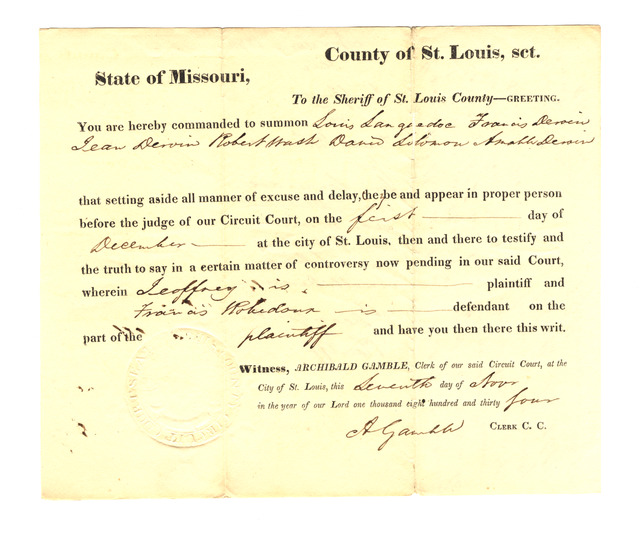 County of St. Louis, sct.
State of Missouri,
To the Sheriff of St. Louis County—GREETING.
You are hereby commanded to summon Louis Languedoc Francis Derouin
Jean Derouin Robert Wash David Solomon Amable Derouin
that setting aside all manner of excuse and delay, they be and appear in proper person
before the judge of our Circuit Court, on the first day of
December at the city of St. Louis, then and there to testify and
the truth to say in a certain matter of controversy now pending in our said Court,
wherein Jeoffrey is plaintiff and
Francis is defendant on the
part of the plaintiff and have you then there this writ.
Witness, ARCHIBALD GAMBLE, Clerk of our said Circuit Court, at the
City of St. Louis, this Seventh day of Novr
in the year of our Lord one thousand eight hundred and thirty four
A Gamble CLERK C. C.